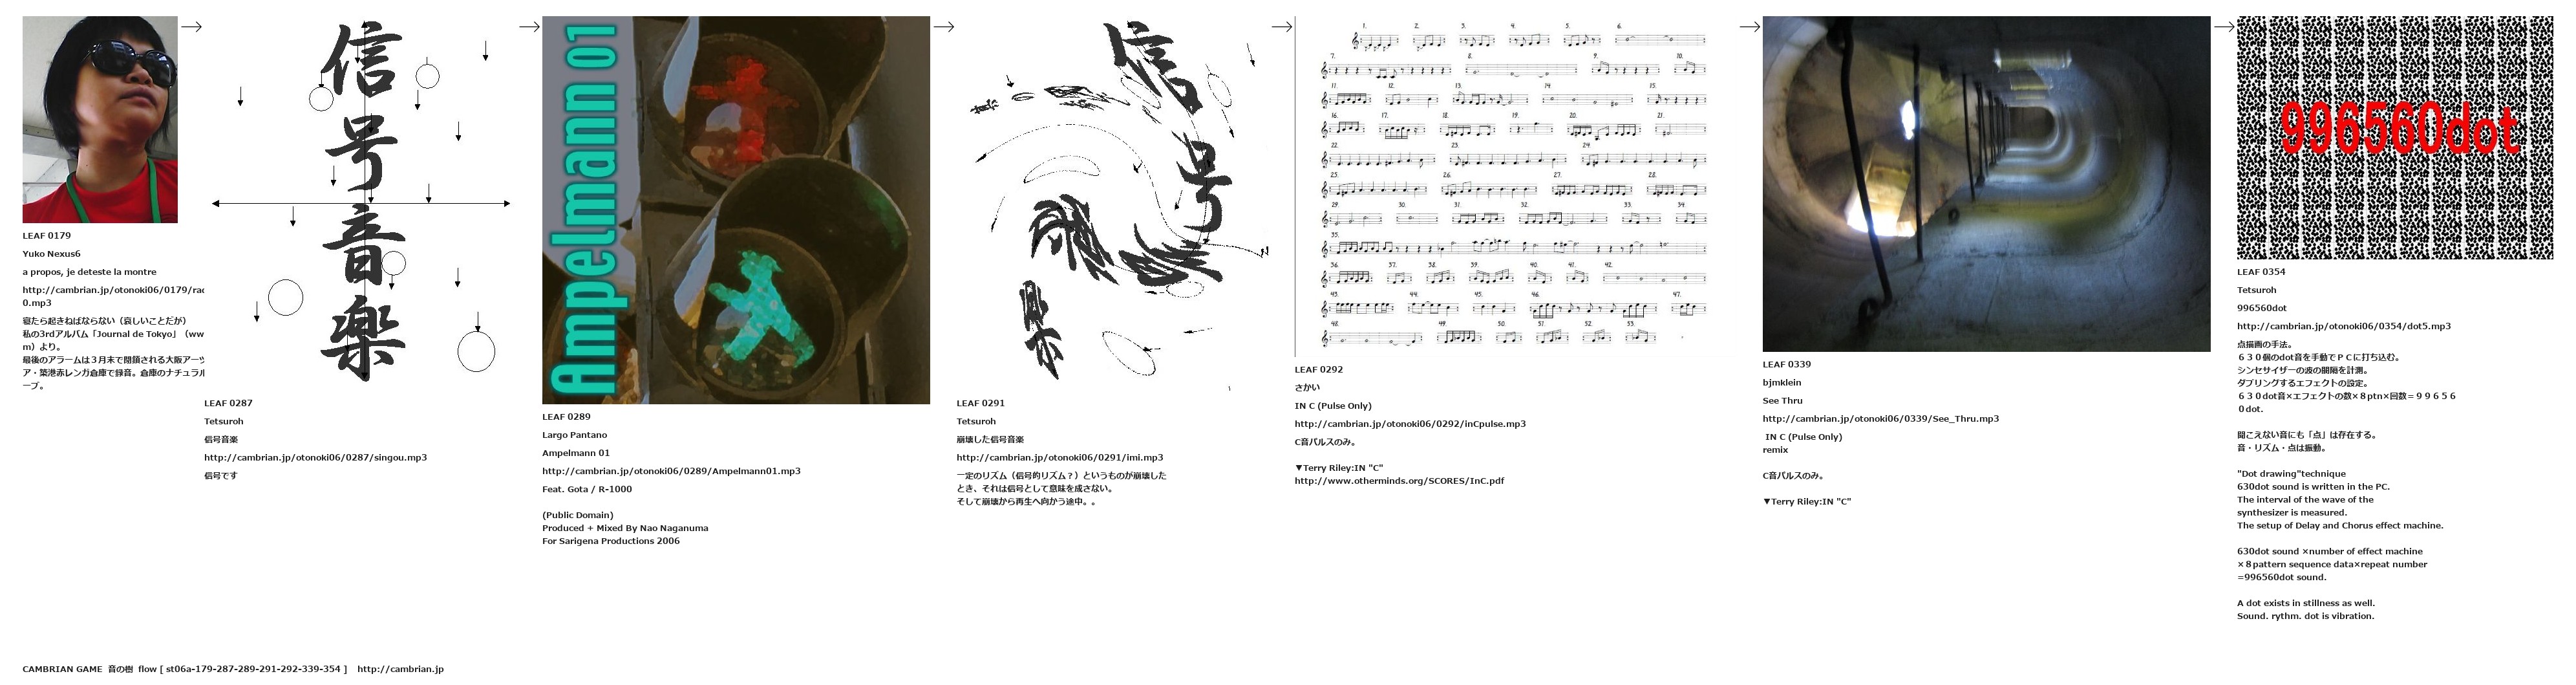 LEAF 0179
Yuko Nexus6
a propos, je deteste la montre
http://cambrian.jp/otonoki06/0179/rac
0.mp3
寝たら起きねばならない（哀しいことだが）
私の3rdアルバム「Journal de Tokyo」（ww
m）より。
最後のアラームは３月末で閉鎖される大阪アーツ
ア・築港赤レンガ倉庫で録音。倉庫のナチュラル
ーブ。
信号音楽
LEAF 0287
Tetsuroh
信号音楽
http://cambrian.jp/otonoki06/0287/singou.mp3
信号です
Ampelmann 01
LEAF 0289
Largo Pantano
Ampelmann 01
http://cambrian.jp/otonoki06/0289/Ampelmann01.mp3
Feat. Gota / R-1000
(Public Domain)
Produced + Mixed By Nao Naganuma
For Sarigena Productions 2006
信号
LEAF 0291
Tetsuroh
崩壊した信号音楽
http://cambrian.jp/otonoki06/0291/imi.mp3
一定のリズム（信号的リズム？）というものが崩壊した
とき、それは信号として意味を成さない。
そして崩壊から再生へ向かう途中。。
1. 2. 3. 4. 5. 6.
7. 8. 9. 10.
11. 12. 13. 14 15.
16. 17. 18. 19. 20. 21.
22. 23. 24.
25. 26. 27. 28.
29. 30. 31. 32. 33. 34.
35.
36. 37. 38. 39. 40. 41. 42.
43. 44. 45. 46. 47.
48. 49. 50. 51. 52. 53.
LEAF 0292
さかい
IN C (Pulse Only)
http://cambrian.jp/otonoki06/0292/inCpulse.mp3
C音パルスのみ。
▼Terry Riley:IN "C"
http://www.otherminds.org/SCORES/InC.pdf
LEAF 0339
bjmklein
See Thru
http://cambrian.jp/otonoki06/0339/See_Thru.mp3
IN C (Pulse Only)
remix
C音パルスのみ。
▼Terry Riley:IN "C"
996560dot
LEAF 0354
Tetsuroh
996560dot
http://cambrian.jp/otonoki06/0354/dot5.mp3
点描画の手法。
６３０個のdot音を手動でＰＣに打ち込む。
シンセサイザーの波の間隔を計測。
ダブリングするエフェクトの設定。
６３０dot音×エフェクトの数×８ptn×回数＝９９６５６
０dot.
聞こえない音にも「点」は存在する。
音・リズム・点は振動。
"Dot drawing"technique
630dot sound is written in the PC.
The interval of the wave of the
synthesizer is measured.
The setup of Delay and Chorus effect machine.
630dot sound ×number of effect machine
×８pattern sequence data×repeat number
=996560dot sound.
A dot exists in stillness as well.
Sound. rythm. dot is vibration.
CAMBRIAN GAME 音の樹 flow [ st06a-179-287-289-291-292-339-354 ] http://cambrian.jp